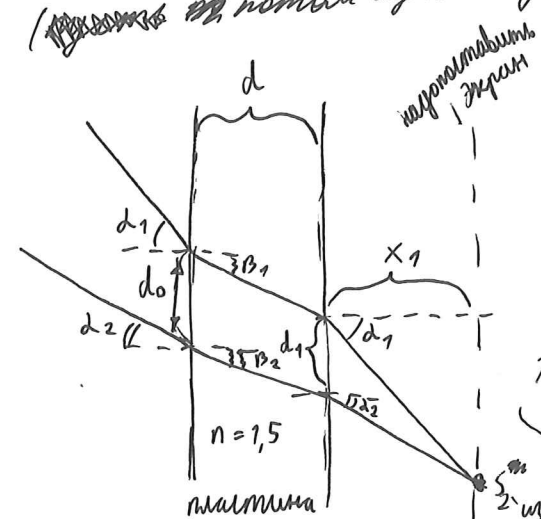 потом
надо поставить
экран
d
α₁
β₁
x₁
d₀
α₂
β₂
d₁
α₁
α₂
n = 1,5
S₂
пластина